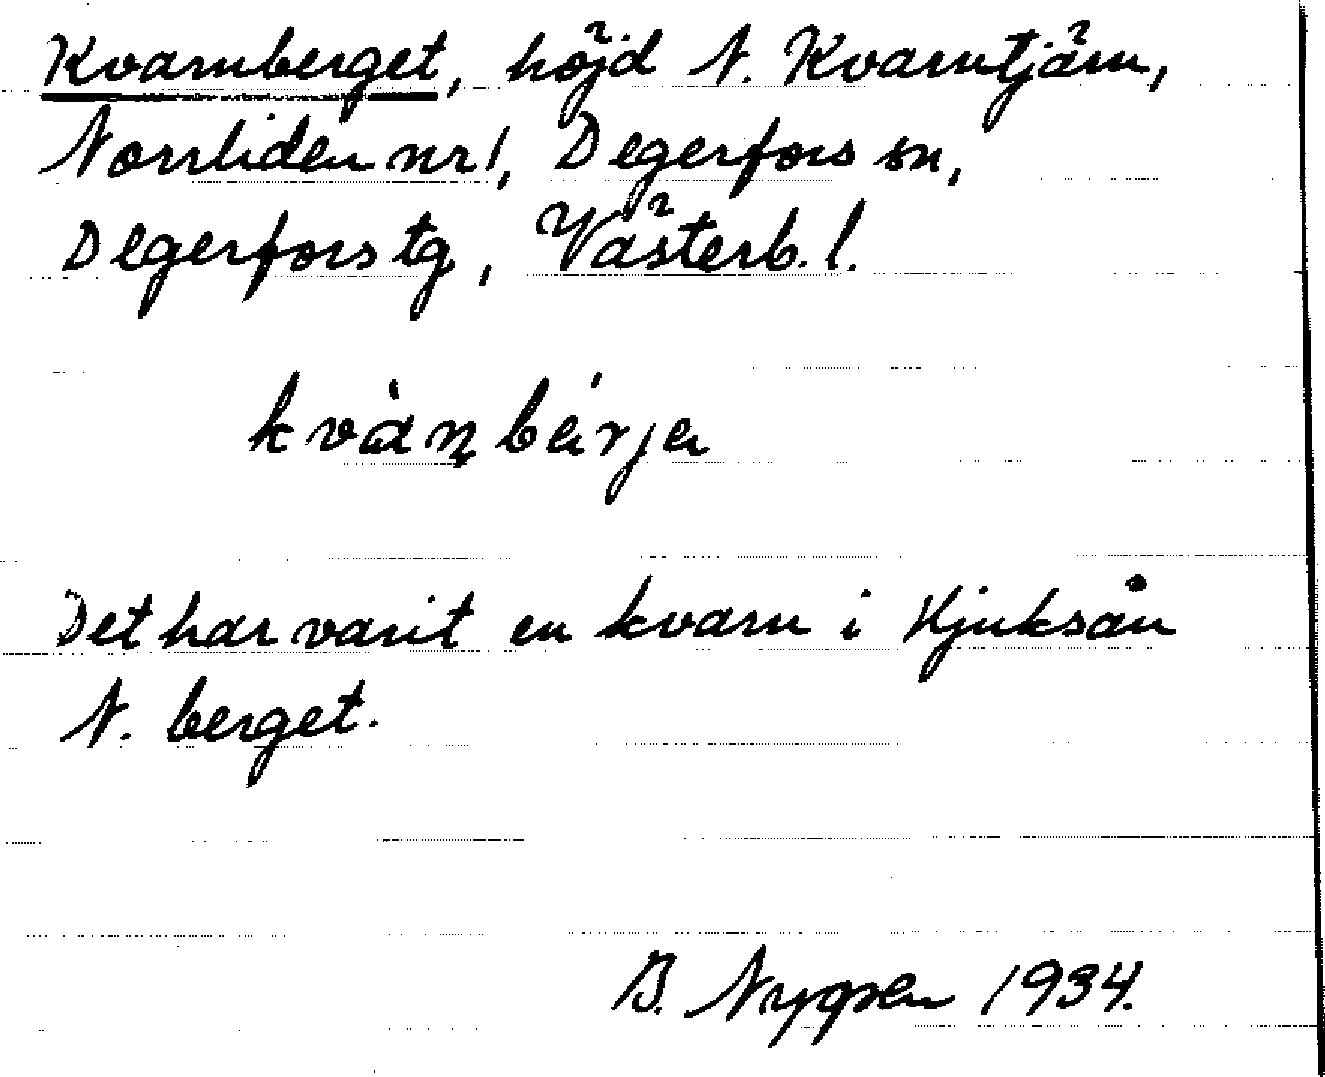 Kvarnberget, höjd N. Kvarntjärn,
Norrliden nr 1, Degerfors sn,
Degerfors tg, Västerb. l.
kvànbárja
Det har varit en kvarn i Hjuksån
N. berget.
B. 1934.